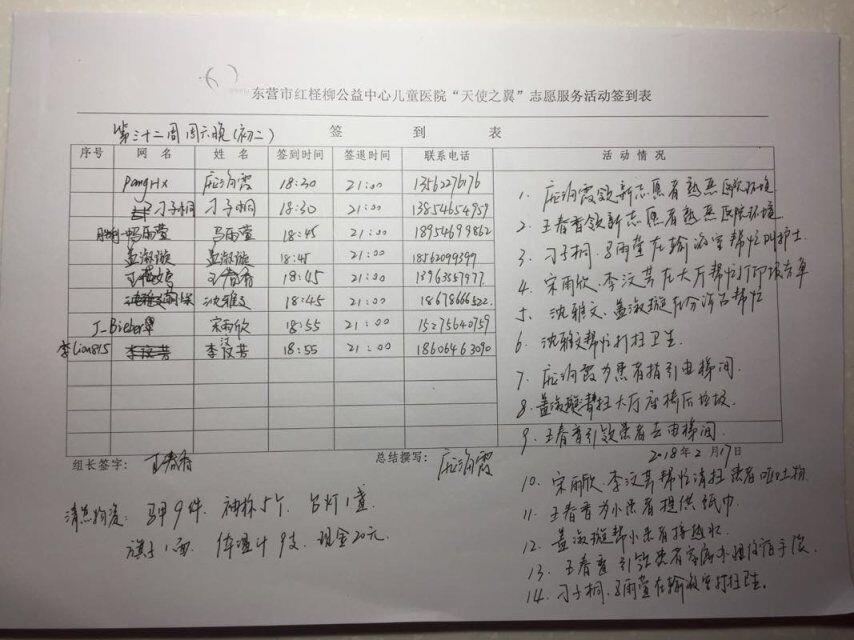 (六)
东营市红柽柳公益中心儿童医院“天使之翼”志愿服务活动签到表
第三十二周周六晚(初二)
签 到 表
序号 网 名 姓 名 签到时间 签退时间 联系电话 活 动 情 况
PangHx 18:30 21:00 13562276176
刁子桐 刁子桐 18:30 21:00 13854654959
马雨萱 18:45 21:00 18954699862
盖淑璇 盖淑璇 18:45 21:00 18562099399
王春香 18:45 21:00 13963557977
沈雅文 18:45 21:00 18678666522
J_Bieber 宋雨欣 18:55 21:00 15275640759
李lion815 李汶芳 18:55 21:00 18606463090
1. 庞洵霞领新志愿者熟悉医院环境
2. 王春香领新志愿者熟悉医院环境
3. 刁子桐、马雨萱在输液室帮忙叫护士
4. 宋雨欣、李汶芳在大厅帮忙打印报告单
5. 沈雅文、盖淑璇在分诊台帮忙
6. 沈雅文帮忙打扫卫生.
7. 庞洵霞为患者指引电梯间.
8. 盖淑璇帮扫大厅座椅后垃圾.
9. 王春香引领患者去电梯间.
组长签字: 王春香 总结撰写: 庞洵霞 2018年2月17日
清点物资: 马甲9件. 袖标5个. 台灯1盏
旗子1面 体温计9支. 现金20元.
10. 宋雨欣、李汶芳帮忙清扫患者呕吐物
11. 王春香为小患者提供纸巾.
12. 盖淑璇帮小患者接热水.
13. 王春香引领患者办理住院手续.
14. 刁子桐.马雨萱在输液室打扫卫生.